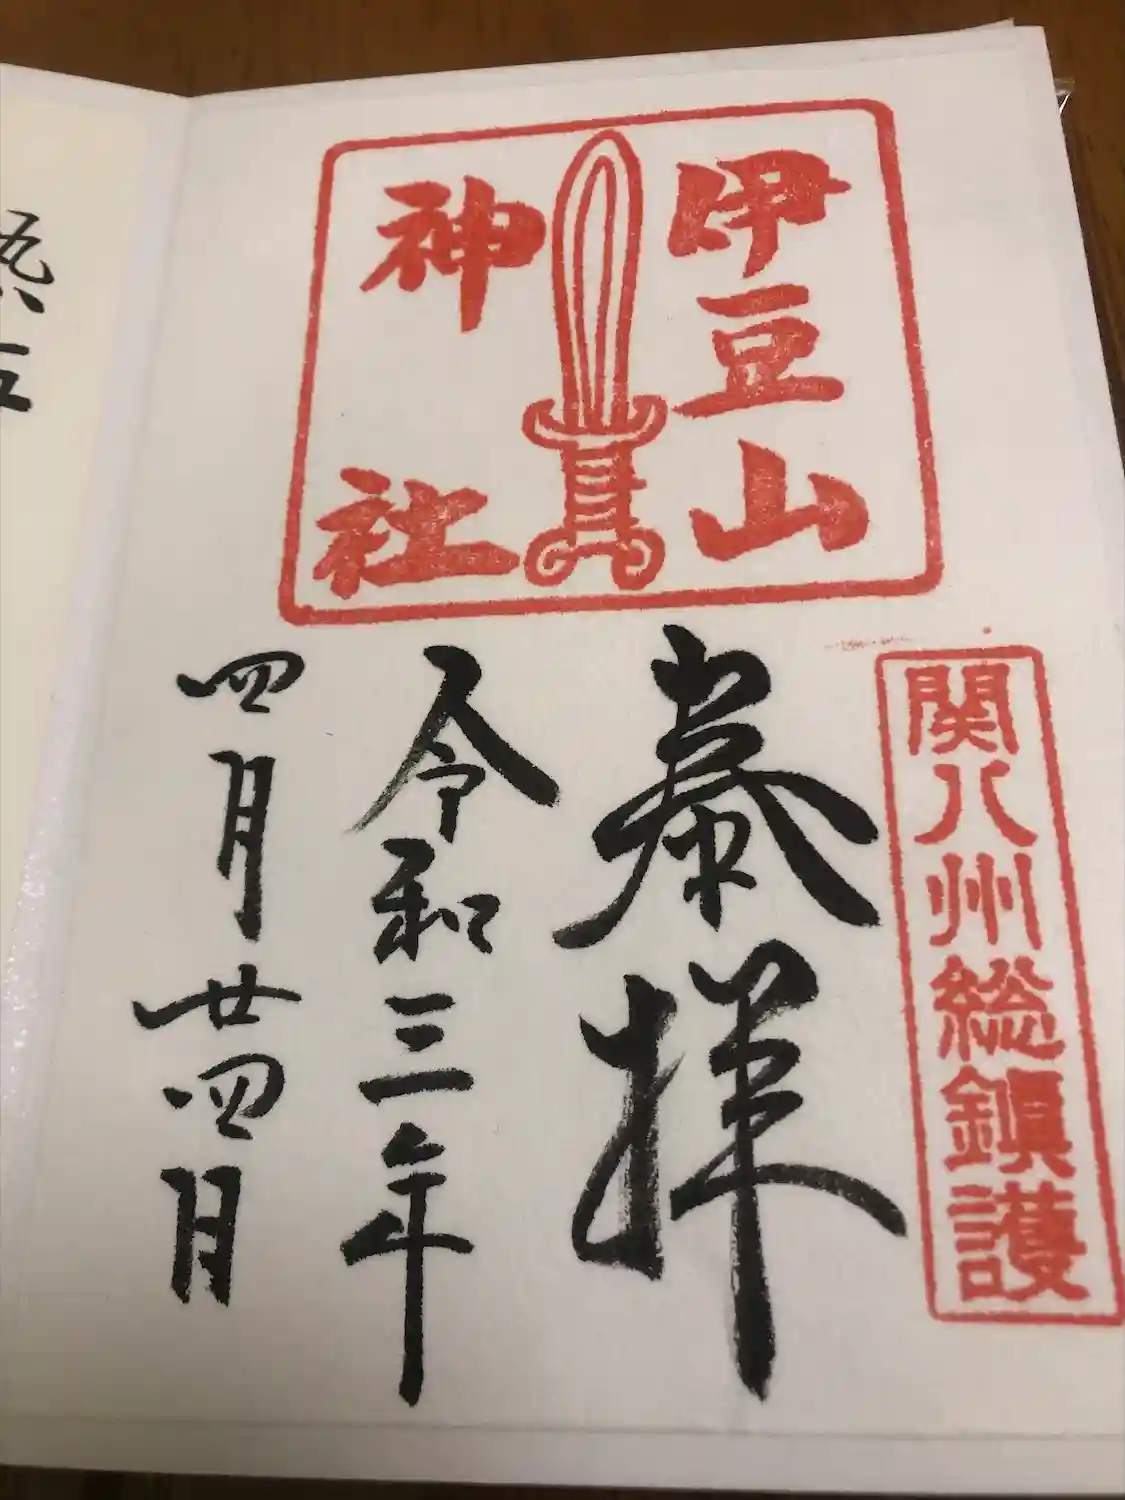 伊豆山
神社
関八州総鎮護
奉拝
令和三年
四月廿四日